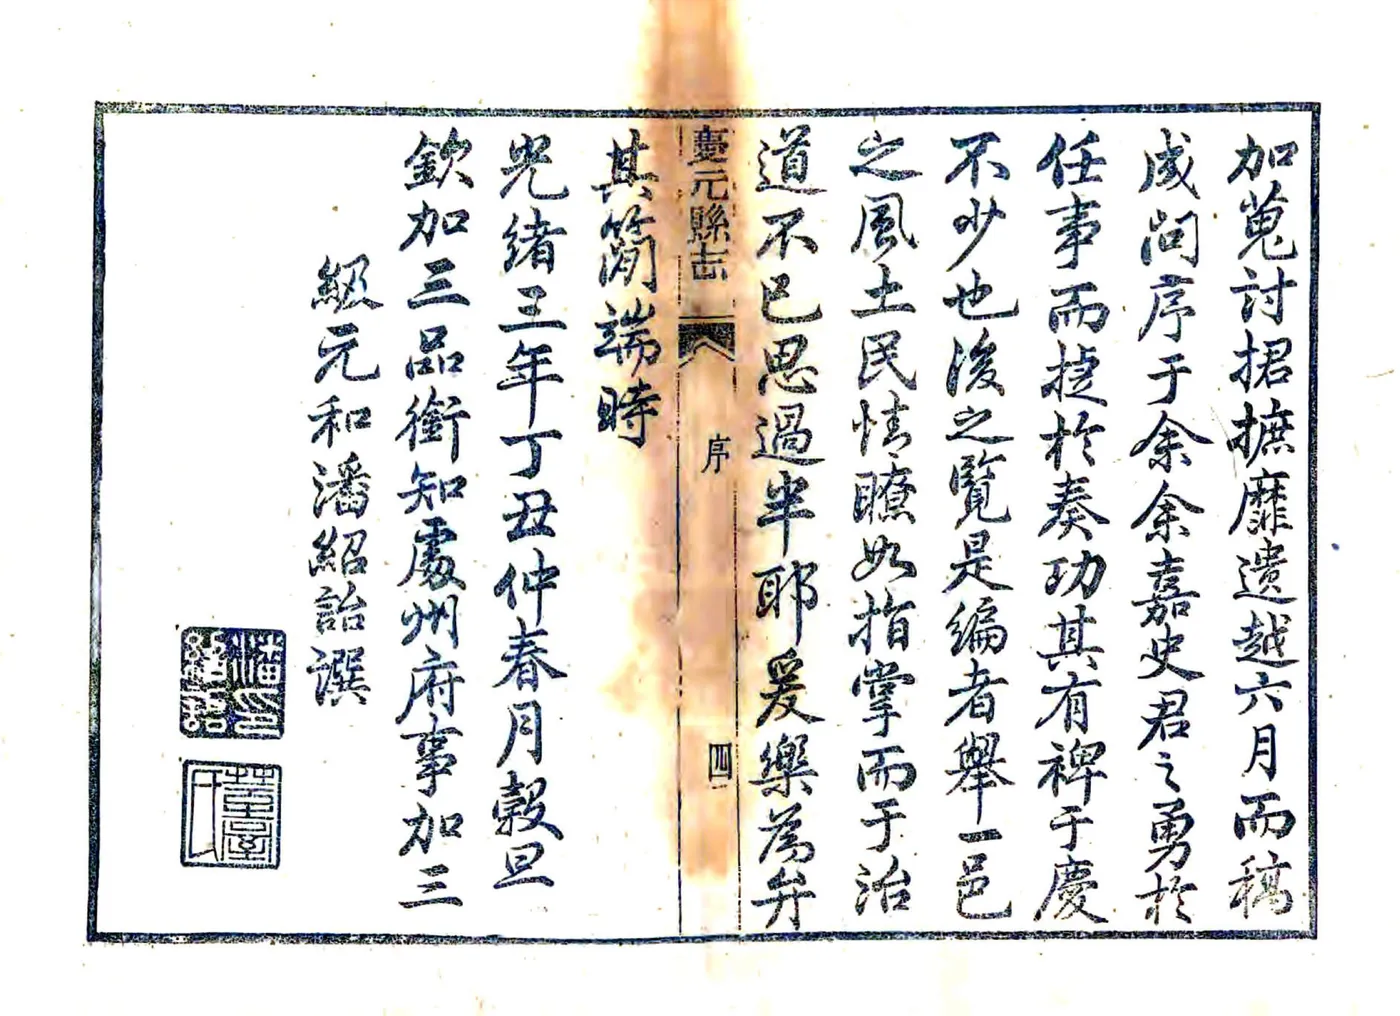 加蒐討捃摭靡遺越六月而稿
成問序于余余嘉史君之勇於
任事而捷於奏功其有裨于慶
不少也後之覽是编者舉一邑
之風土民情瞭如指掌而于治
道不已思過半耶爰樂為弁
慶元縣志
序
四
其簡端時
光緒三年丁丑仲春月穀旦
欽加三品銜知處州府事加三
級元和潘紹詒譔
潘印紹詒